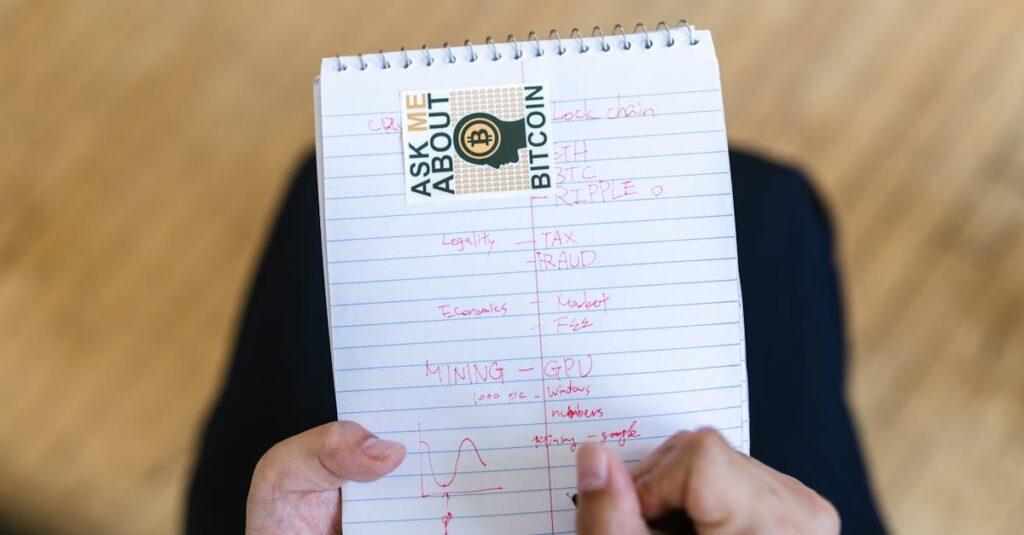 ASK ME
ABOUT
BITCOIN
Lock chain
TH
BTC
- RIPPLE
Legality - TAX
- FRAUD
Economics - Market
- Fee
MINING - GPU
1,000 pc - Windows
numbers
- google